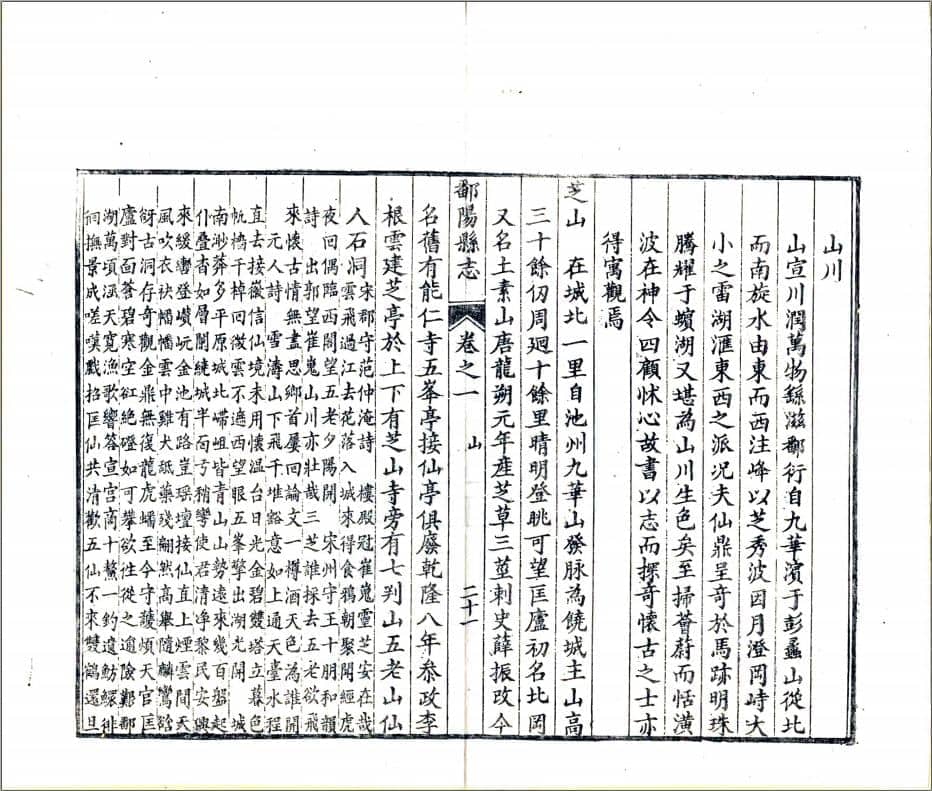 山川
山宣川潤萬物繇滋鄱衍自九華濱于彭蠡山從北
而南旋水由東而西注峰以芝秀波因月澄岡峙大
小之雷湖滙東西之派况夫仙鼎呈奇於馬跡明珠
騰耀于蠙湖又堪為山川生色矣至掃薈蔚而恬潢
波在神令四顧怵心故書以志而探奇懷古之士亦
得寓觀焉
芝山 在城北一里自池州九華山發脉為饒城主山高
三十餘仞周廻十餘里晴明登眺可望匡廬初名北岡
又名土素山唐龍朔元年產芝草三莖刺史薛振改今
鄱陽縣志 卷之一 山 二十一
名舊有能仁寺五峯亭接仙亭俱廢乾隆八年叅政李
根雲建芝亭於上下有芝山寺旁有七判山五老山仙
人石洞宋郡守范仲淹詩 樓殿冠崔嵬靈芝安在哉
雲飛過江去花落入城來得食鴉朝聚聞經虎
夜回偶臨西閣望五老夕陽開 宋州守王十朋和韻
詩 出郭望崔嵬山川亦壯哉三芝誰採去五老欲飛
來懷古情無盡思鄉首屢回論文一樽酒天色為誰開
元人詩 雪濤山下飛千堆豁意如上通天臺水程
直去接徽信仙境未用懷温台日光金碧雙塔立暮色
帆檣千棹回微雲不遮西望眼五峯擎出湖光開 城
南渺莽多平原城北嶗岨皆青山山勢遠來幾百盤起
仆疊沓如層闌縫城半面弓稍彎使君清淨黎民安興
來緩轡登巑岏金池有路豈瑶壇接仙直上煙雲間天
風吹衣袂幡幡雲中雞犬舐藥殘翩然高舉隨麟鸞谽
谺古洞存奇觀金鼎無復龍虎蟠至今守護煩天官匡
廬對面蒼碧寒空欲絶磴如可攀欲徃從之逾險艱鄱
湖萬頃涵天寛漁歌響答宣宫商十鰲一釣遺魴鰥徘
徊撫景成嗟嘆戲招匡仙共清歡五仙不來雙鶴還旦